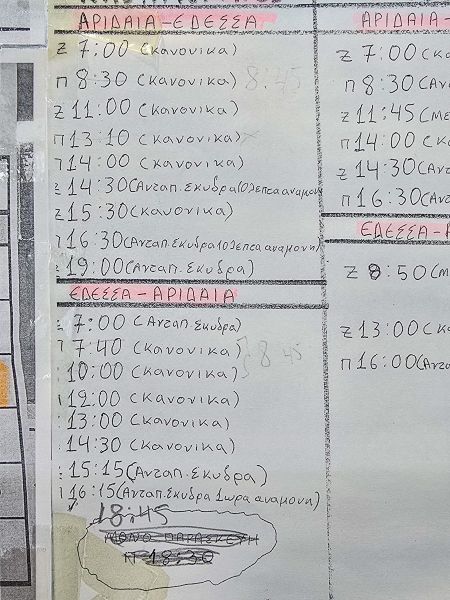 ΑΡΙΔΑΙΑ-ΕΔΕΣΣΑ
Ζ 7:00 (Κανονικα)
Π 8:30 (Κανονικα) 8:45
Ζ 11:00 (Κανονικα)
Π 13:10 (Κανονικα)
Π 14:00 (Κανονικα)
Ζ 14:30 (Ανταπ. Σκυδρα 10 λεπτα αναμον
Ζ 15:30 (Κανονικα)
Π 16:30 (Ανταπ. Σκυδρα 10 λεπτα αναμονη)
Ζ 19:00 (Ανταπ. Σκυδρα)
ΕΔΕΣΣΑ-ΑΡΙΔΑΙΑ
Ζ 7:00 (Ανταπ. Σκυδρα)
7:40 (Κανονικα)
8:45
10:00 (Κανονικα)
12:00 (Κανονικα)
13:00 (Κανονικα)
14:30 (Κανονικα)
15:15 (Ανταπ. Σκυδρα)
16:15 (Ανταπ. Σκυδρα 1 ωρα αναμονη)
18:45
ΜΟΝΟ ΠΑΡΑΣΚΕΥΗ
Π 18:30
ΑΡΙΔΑΙΑ-
Ζ 7:00 (Κα
Π 8:30 (Αν
Ζ 11:45 (Με
Π 14:00 (Κ
Ζ 14:30 (Αντ
Π 16:30 (Αντ
ΕΔΕΣΣΑ-Α
Ζ 8:50 (Μ
Ζ 13:00 (Κα
Π 16:00 (Αντ